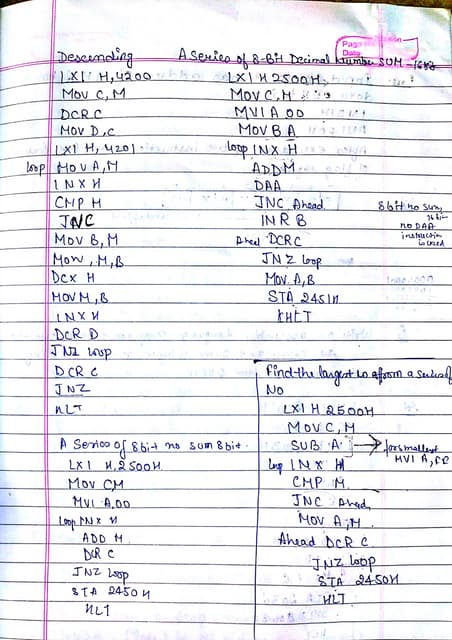 Descending
LXI H, 4200
MOV C, M
DCR C
MOV D, C
LXI H, 4201
loop MOV A, M
INX H
CMP M
JNC
MOV B, M
MOV, M, B
DCX H
MOV M, B
INX H
DCR D
JNZ loop
DCR C
JNZ
HLT
A Series of 8bit no sum 8bit.
LXI H, 2500H
MOV CM
MVI A, 00
loop INX H
ADD M
DCR C
JNZ loop
STA 2450 H
HLT
A Series of 8-Bit Decimal Number SUM - 16bit
LXI H 2500H
MOV C, M
MVI A 00
MOV B A
loop INX H
ADD M
DAA
JNC Ahead
INR B
Ahed DCRC
JNZ loop
MOV. A, B
STA 2451H
HLT
8bit no sum,
16bit
no DAA
instruction
Find the largest no from a series of
No
LXI H 2500H
MOV C, M
SUB A → for smallest
MVI A, FF
loop INX H
CMP M
JNC Ahead
MOV A, M
Ahead DCR C
JNZ loop
STA 2450H
HLT